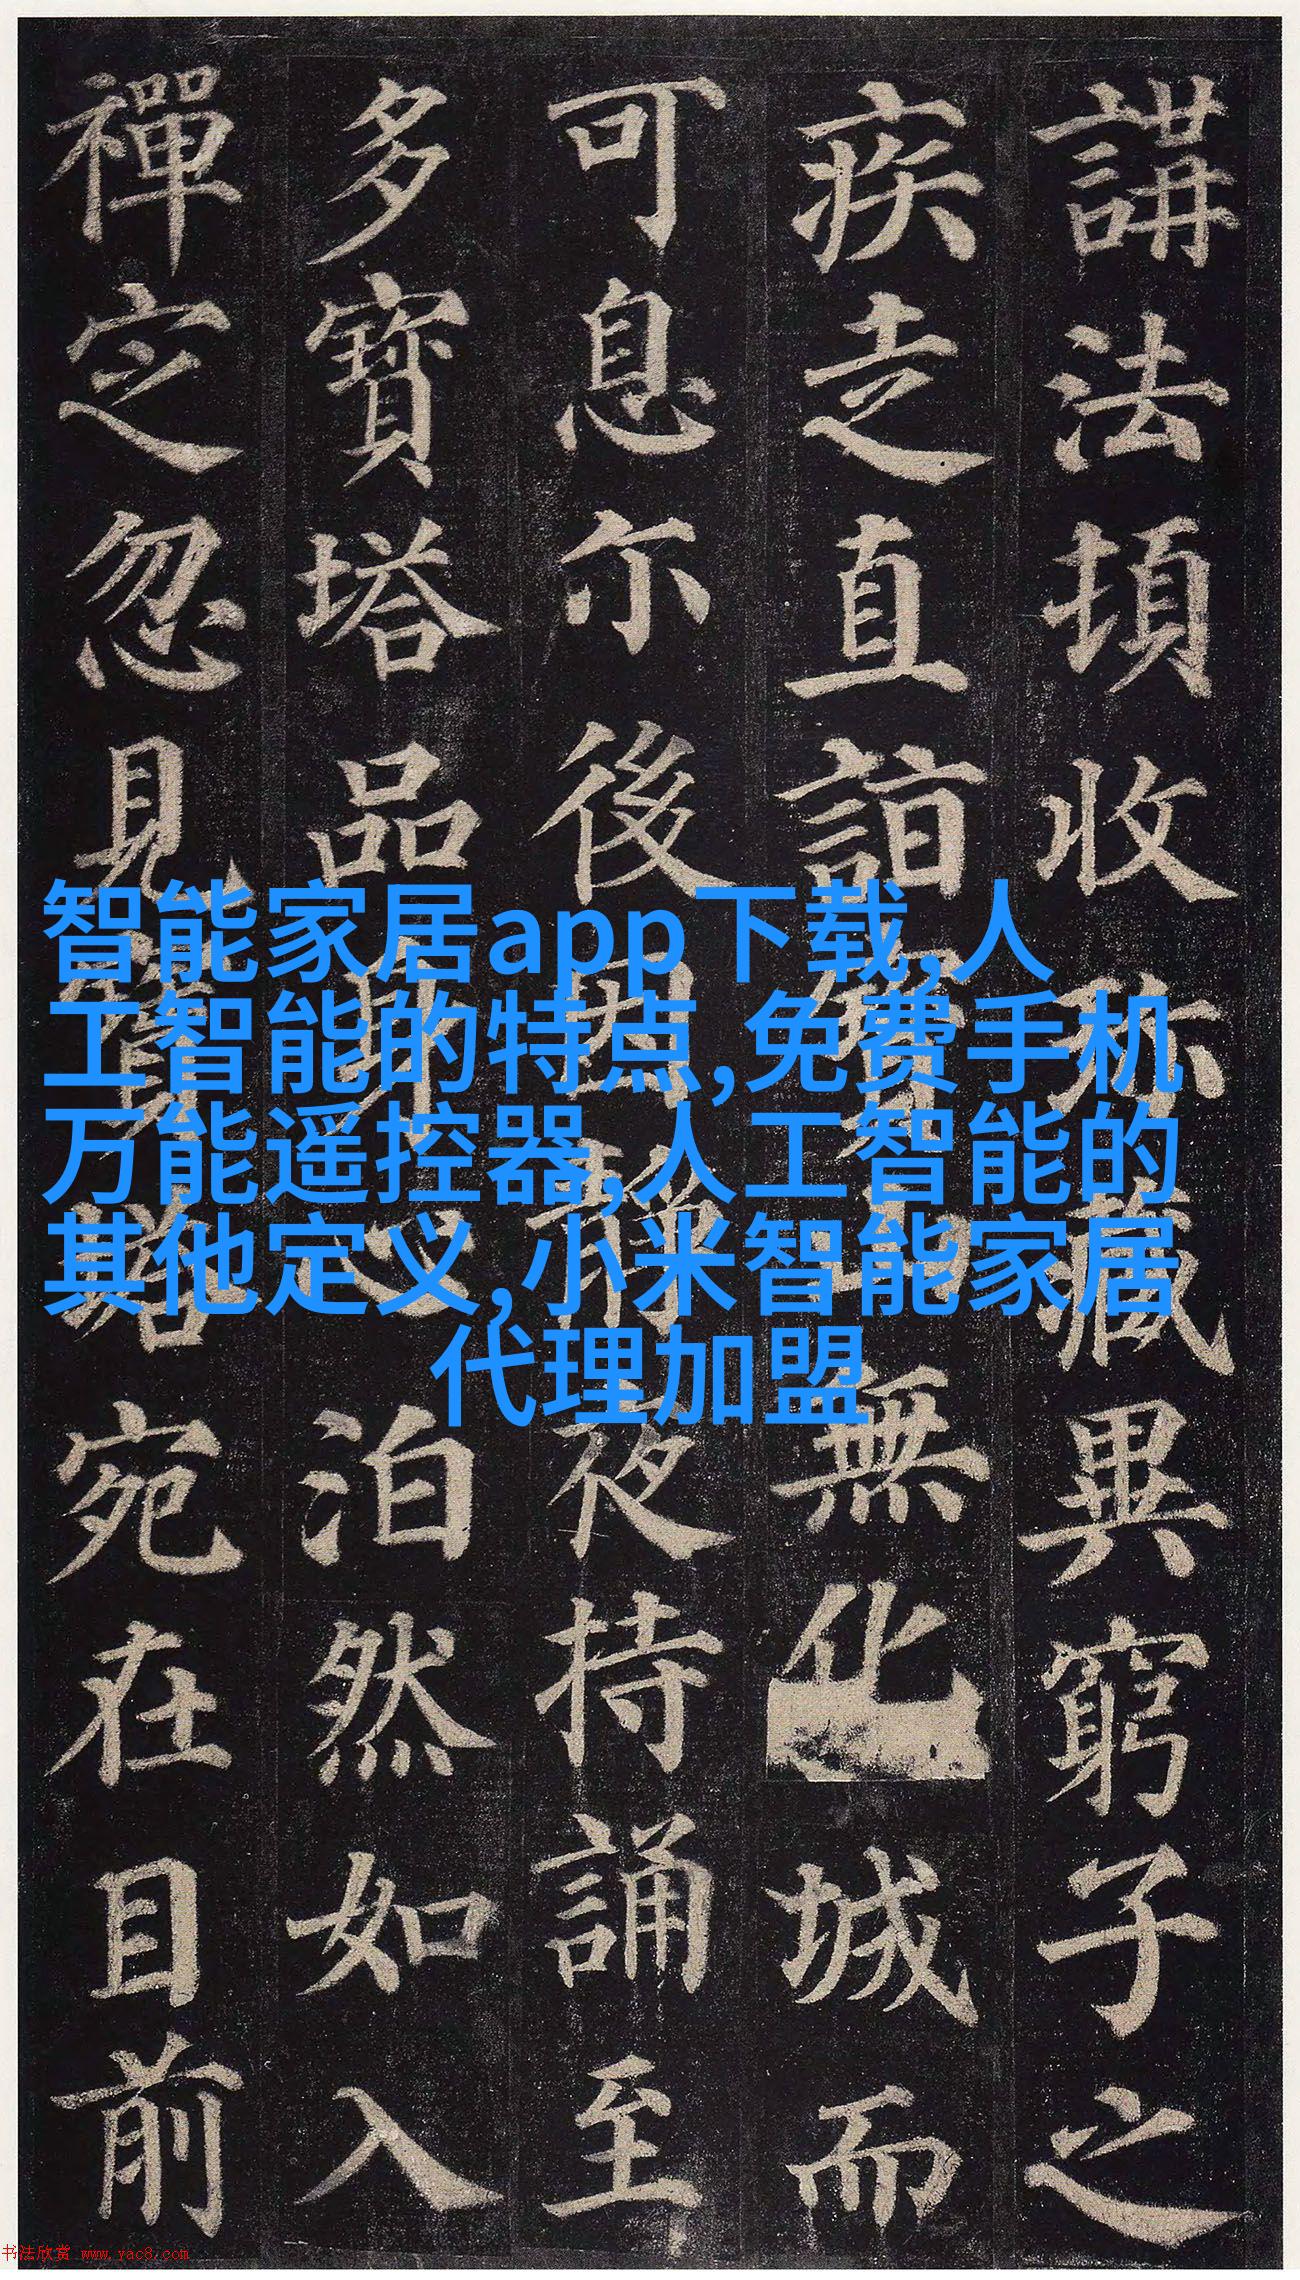 講法頓收珎藏異窮子之
疾走直詣寶山無化城而
可息尒後因靜夜持誦至
多寶塔品身心泊然如入
禪定忽見寶塔宛在目前
智能家居app下载,人
工智能的特点,免费手机
万能遥控器,人工智能的
其他定义,小米智能家居
代理加盟
书法欣赏 www.yac8.com